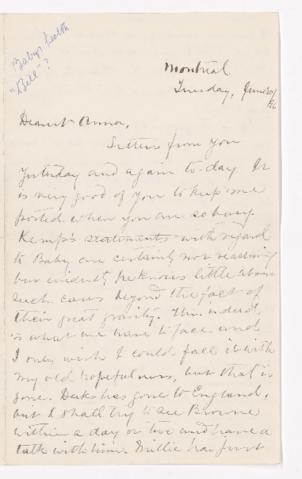 Baby's health
"Bell"?
Montreal
Tuesday, June 20/
Dearest Anna,
Letters from you
yesterday and again to-day. It
is very good of you to keep me
posted when you are so busy.
Kemp's statements with regard
to Baby are certainly not reassuring
but evidently he knows little about
such cases beyond the fact of
their great gravity. This indeed,
is what we have to face and
I only wish I could face it with
my old hopefulness, but that is
gone. has gone to England,
but I shall try to see Browne
within a day or two and have a
talk with him. Willie has just